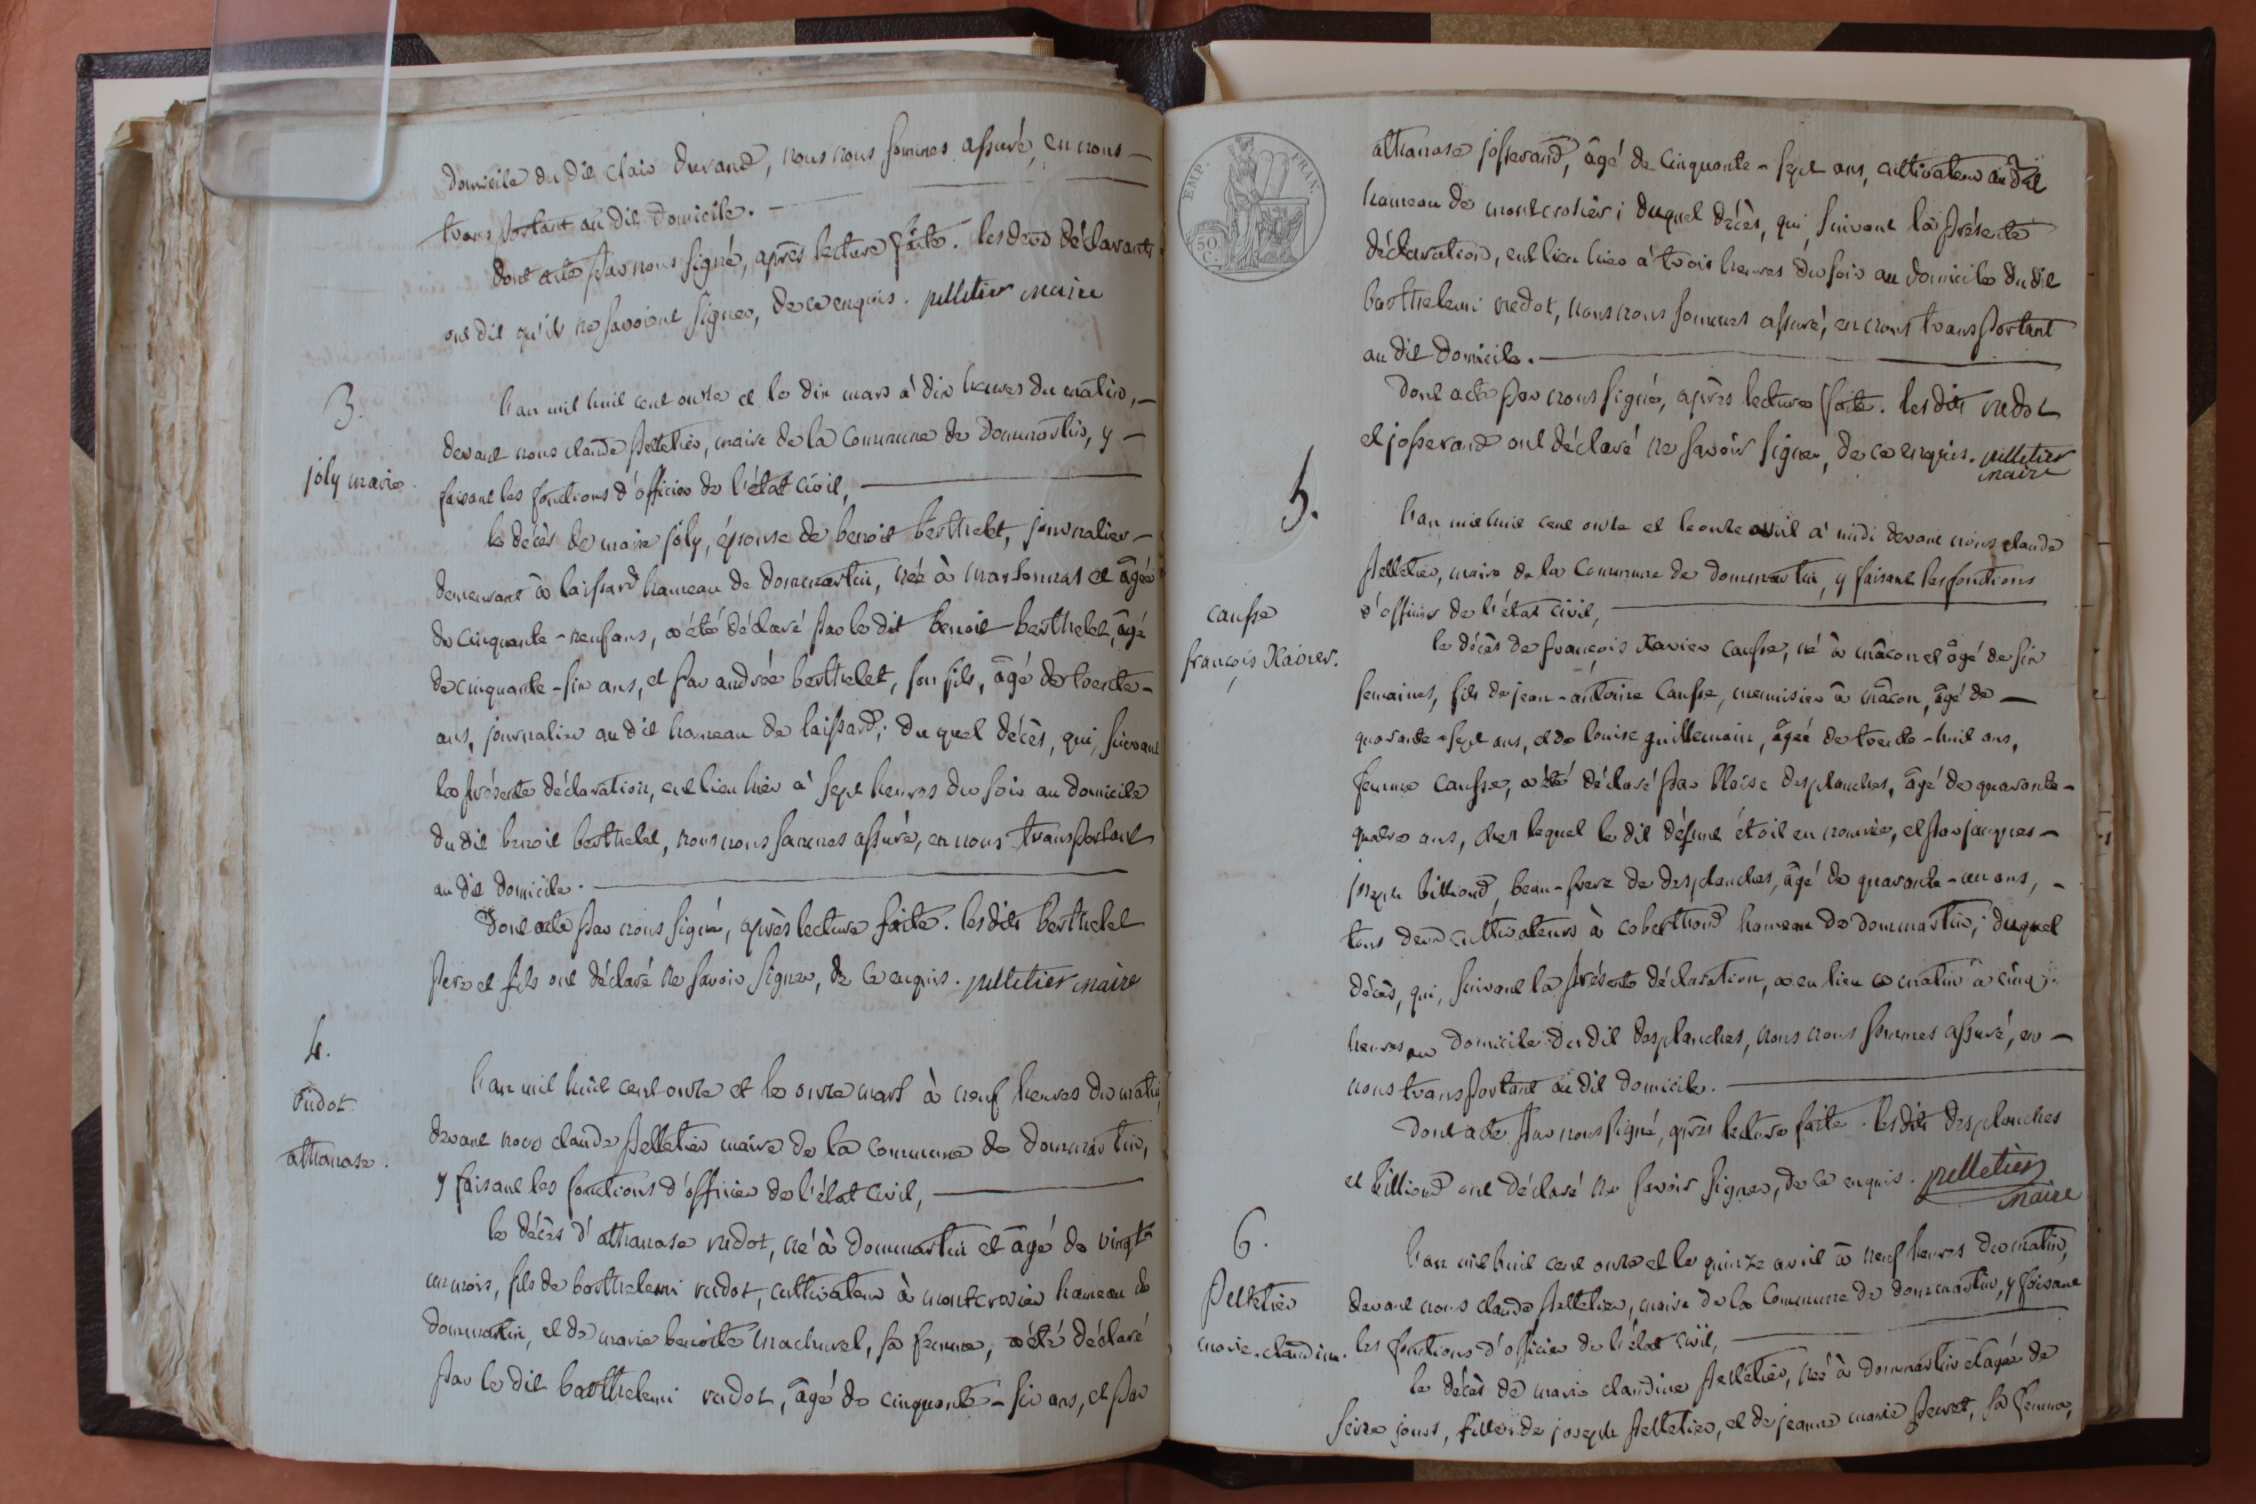 domicile du dit clair durand, nous nous sommes assuré, en nous
transportant au dit domicile.
dont acte par nous signé, après lecture faite. les deux déclarants
ont dit qu'ils ne savoient signer, de ce enquis. pelletier maire
3.
joly marie.
l'an mil huit cent onze et le dix mars à dix heures du matin,
devant nous claude pelletier, maire de la commune de dommartin, y
faisant les fonctions d'officier de l'état civil,
le décès de marie joly, épouse de benoit berthelet, journalier
demeurant à laissard hameau de dommartin, née à marsonnas et âgée
de cinquante-neuf ans, a été déclaré par le dit benoit berthelet, âgé
de cinquante-six ans, et par andrée berthelet, son fils, âgé de trente
ans, journalier au dit hameau de laissard; du quel décès, qui, suivant
la présente déclaration, eut lieu hier à sept heures du soir au domicile
du dit benoit berthelet, nous nous sommes assuré, en nous transportant
au dit domicile.
dont acte par nous signé, après lecture faite. les dits berthelet
pere et fils ont déclaré ne savoir signer, de ce enquis. pelletier maire
4.
rudot
athanase.
l'an mil huit cent onze et le onze mars à neuf heures du matin,
devant nous claude pelletier maire de la commune de dommartin,
y faisant les fonctions d'officier de l'état civil,
le décès d'athanase rudot, né à dommartin et âgé de vingt
un mois, fils de barthelemi rudot, cultivateur à montcrosier hameau de
dommartin, et de marie benoite machurel, sa femme, a été déclaré
par le dit barthelemi rudot, âgé de cinquante-six ans, et par
EMP. FRAN.
50
C.
athanase josserand, âgé de cinquante-sept ans, cultivateur au dit
hameau de montcrosier; duquel décès, qui, suivant la présente
déclaration, eut lieu hier à trois heures du soir au domicile du dit
barthelemi rudot, nous nous sommes assuré, en nous transportant
au dit domicile.
dont acte par nous signé, après lecture faite. les dits rudot
et josserand ont déclaré ne savoir signer, de ce enquis. pelletier
maire
5.
causse
françois Xavier.
l'an mil huit cent onze et le onze avril à midi devant nous claude
pelletier, maire de la commune de dommartin, y faisant les fonctions
d'officier de l'état civil,
le décès de françois Xavier causse, né à mâcon et âgé de six
semaines, fils de jean-antoine causse, menuisier à mâcon, âgé de
quarante-sept ans, et de louise guillemain, âgée de trente-huit ans,
femme causse, a été déclaré par blaise desplanches, âgé de quarante-
quatre ans, chez lequel le dit défunt étoit en nourrice, et par jacques
joseph billioud, beau-frere de desplanches, âgé de quarante-un ans,
tous deux cultivateurs à coberthoud hameau de dommartin; duquel
décès, qui, suivant la présente déclaration, a eu lieu ce matin à cinq
heures au domicile du dit desplanches, nous nous sommes assuré, en
nous transportant au dit domicile.
dont acte par nous signé, après lecture faite. les dits desplanches
et billioud ont déclaré ne savoir signer, de ce enquis. pelletier
maire
6.
pelletier
marie-claudine.
l'an mil huit cent onze et le quinze avril à neuf heures du matin,
devant nous claude pelletier, maire de la commune de dommartin, y faisant
les fonctions d'officier de l'état civil,
le décès de marie claudine pelletier, née à dommartin et agée de
seize jours, fille de joseph pelletier, et de jeanne marie perret, sa femme,